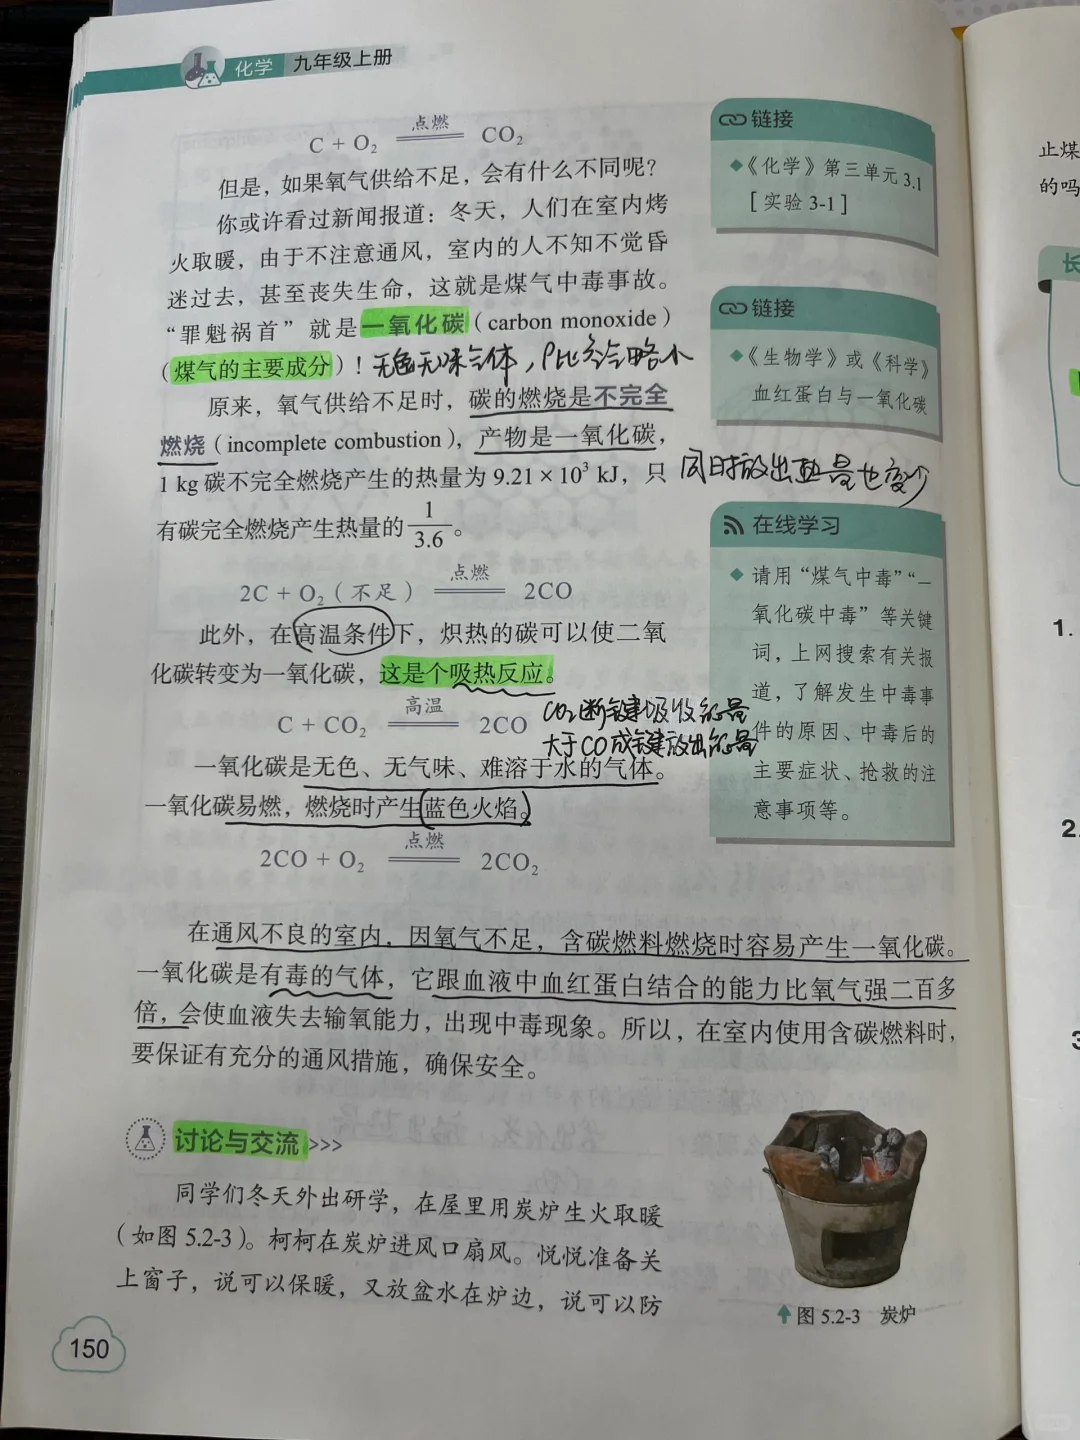 化学 九年级上册
C + O₂ 点燃 CO₂
但是，如果氧气供给不足，会有什么不同呢？
你或许看过新闻报道：冬天，人们在室内烤
火取暖，由于不注意通风，室内的人不知不觉昏
迷过去，甚至丧失生命，这就是煤气中毒事故。
“罪魁祸首”就是一氧化碳（carbon monoxide）
（煤气的主要成分）！无色无味气体，ρ比空气略小
原来，氧气供给不足时，碳的燃烧是不完全
燃烧（incomplete combustion），产物是一氧化碳，
1 kg 碳不完全燃烧产生的热量为 9.21 × 10³ kJ，只 同时放出热量也变少
有碳完全燃烧产生热量的 1/3.6。
2C + O₂（不足） 点燃 2CO
此外，在高温条件下，炽热的碳可以使二氧
化碳转变为一氧化碳，这是个吸热反应。
C + CO₂ 高温 2CO
CO₂断键吸收能量
大于CO成键放出能量
一氧化碳是无色、无气味、难溶于水的气体。
一氧化碳易燃，燃烧时产生蓝色火焰。
2CO + O₂ 点燃 2CO₂
在通风不良的室内，因氧气不足，含碳燃料燃烧时容易产生一氧化碳。
一氧化碳是有毒的气体，它跟血液中血红蛋白结合的能力比氧气强二百多
倍，会使血液失去输氧能力，出现中毒现象。所以，在室内使用含碳燃料时，
要保证有充分的通风措施，确保安全。
讨论与交流>>>
同学们冬天外出研学，在屋里用炭炉生火取暖
（如图 5.2-3）。柯柯在炭炉进风口扇风。悦悦准备关
上窗子，说可以保暖，又放盆水在炉边，说可以防
图 5.2-3 炭炉
150
链接
《化学》第三单元 3.1
［实验 3-1］
链接
《生物学》或《科学》
血红蛋白与一氧化碳
在线学习
请用“煤气中毒”“一
氧化碳中毒”等关键
词，上网搜索有关报
道，了解发生中毒事
件的原因、中毒后的
主要症状、抢救的注
意事项等。
止煤
的吗
长
1.
2.
3